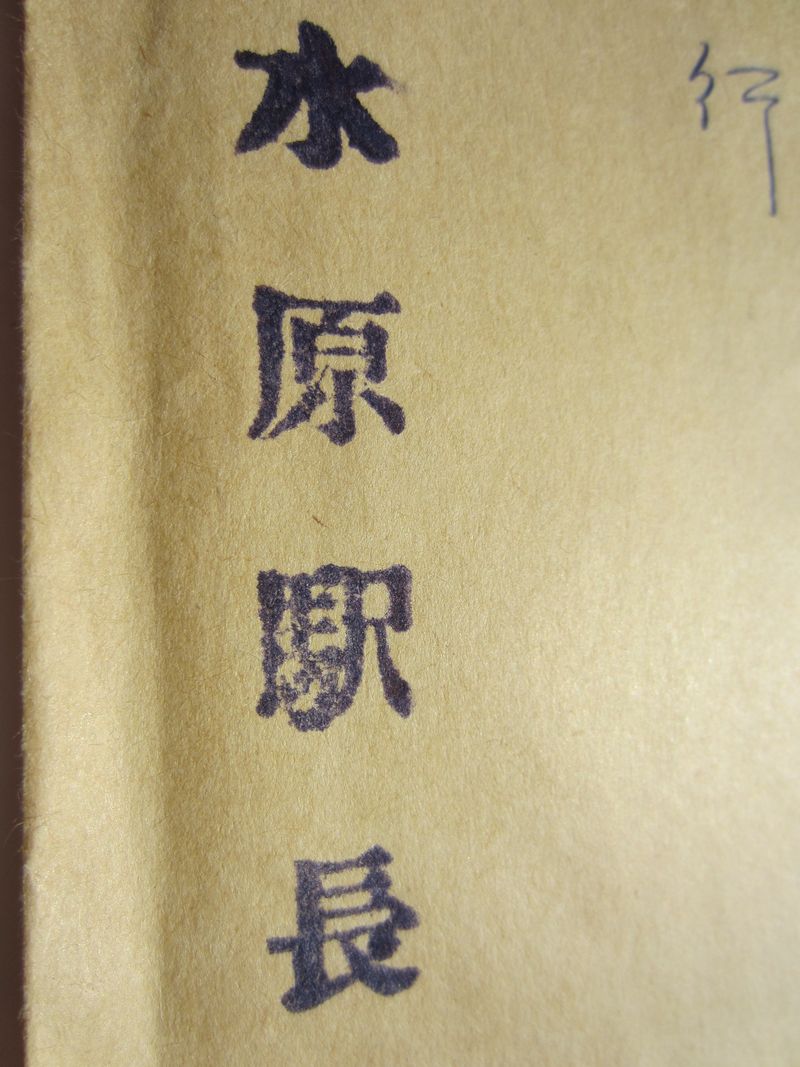 行
水原駅長